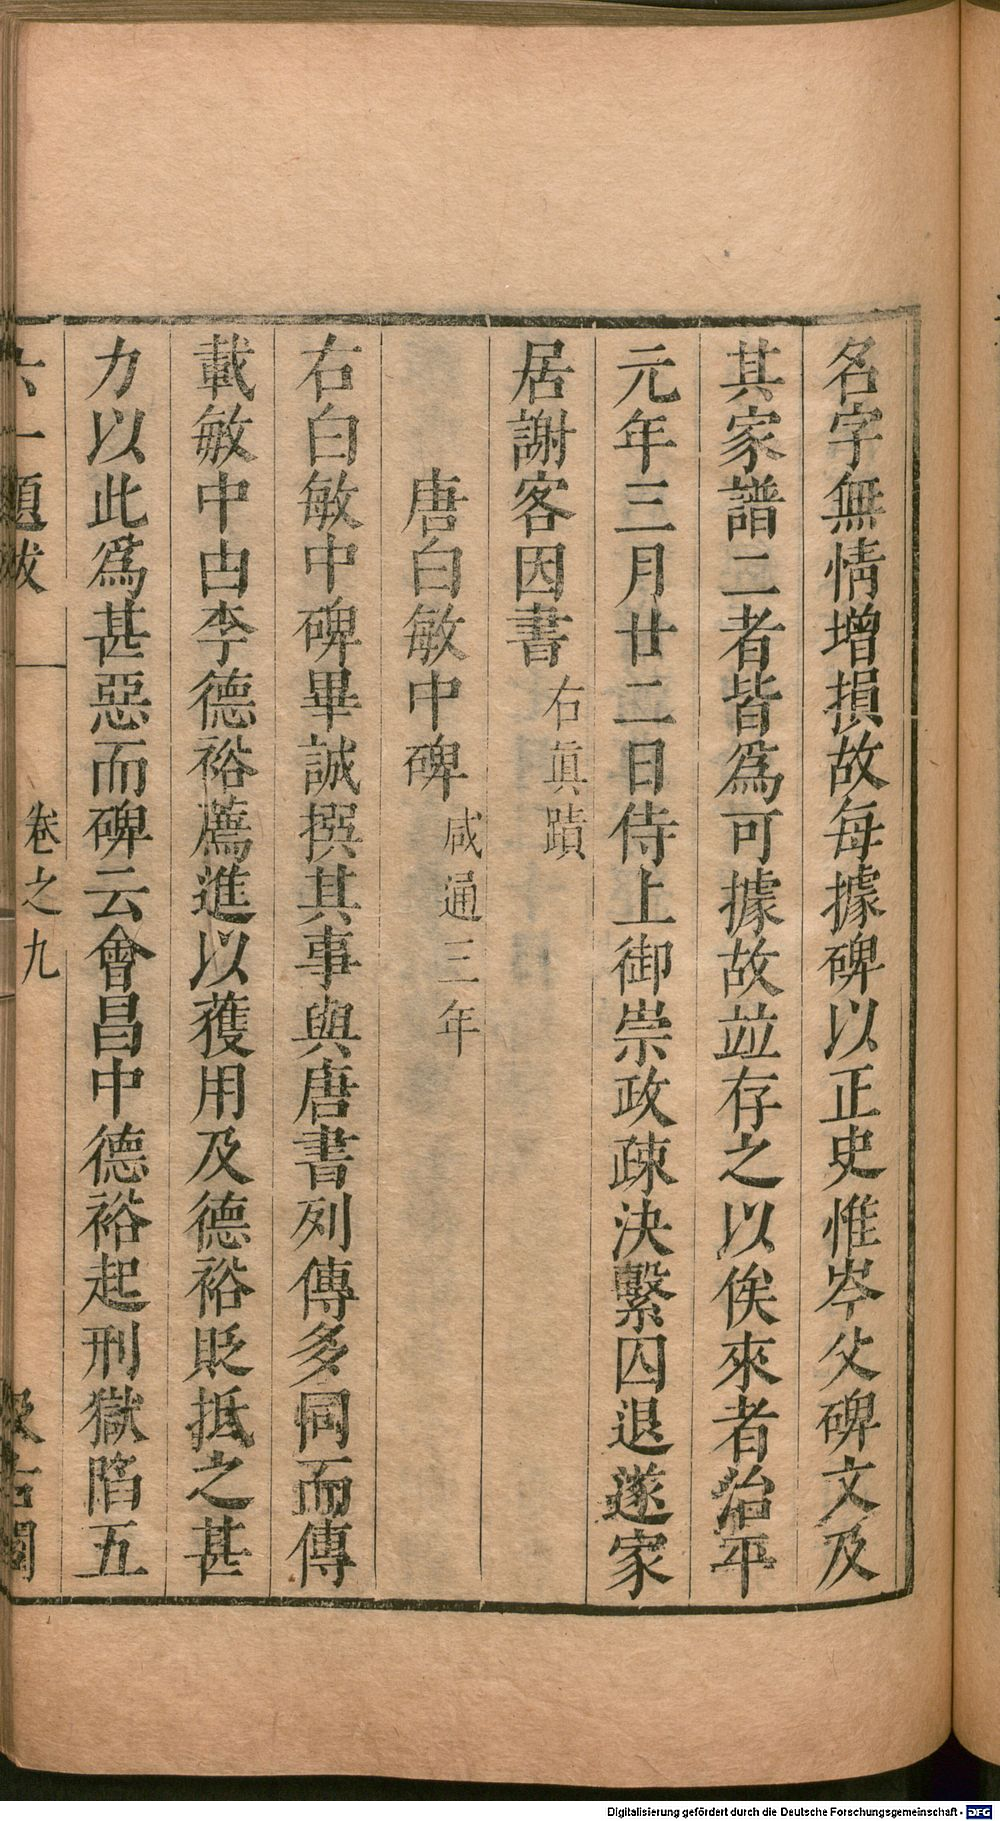 名字無情增損故每據碑以正史惟岑父碑文及
其家譜二者皆爲可據故並存之以俟來者治平
元年三月廿二日侍上御崇政疎決繫囚退遂家
居謝客因書右眞蹟
唐白敏中碑咸通三年
右白敏中碑畢諴撰其事與唐書列傳多同而傳
載敏中由李德裕薦進以獲用及德裕貶抵之甚
力以此爲甚惡而碑云會昌中德裕起刑獄陷五
六一題跋 卷之九 汲古閣
Digitalisierung gefördert durch die Deutsche Forschungsgemeinschaft - DFG